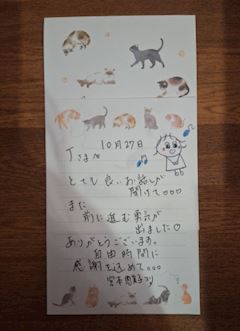 10月27日
Tさまへ
とても良いお話が
聞けて。。。
また
前に進む勇気が
出ました♡
ありがとうございます。
自由時間に
感謝を込めて。。。
宮本